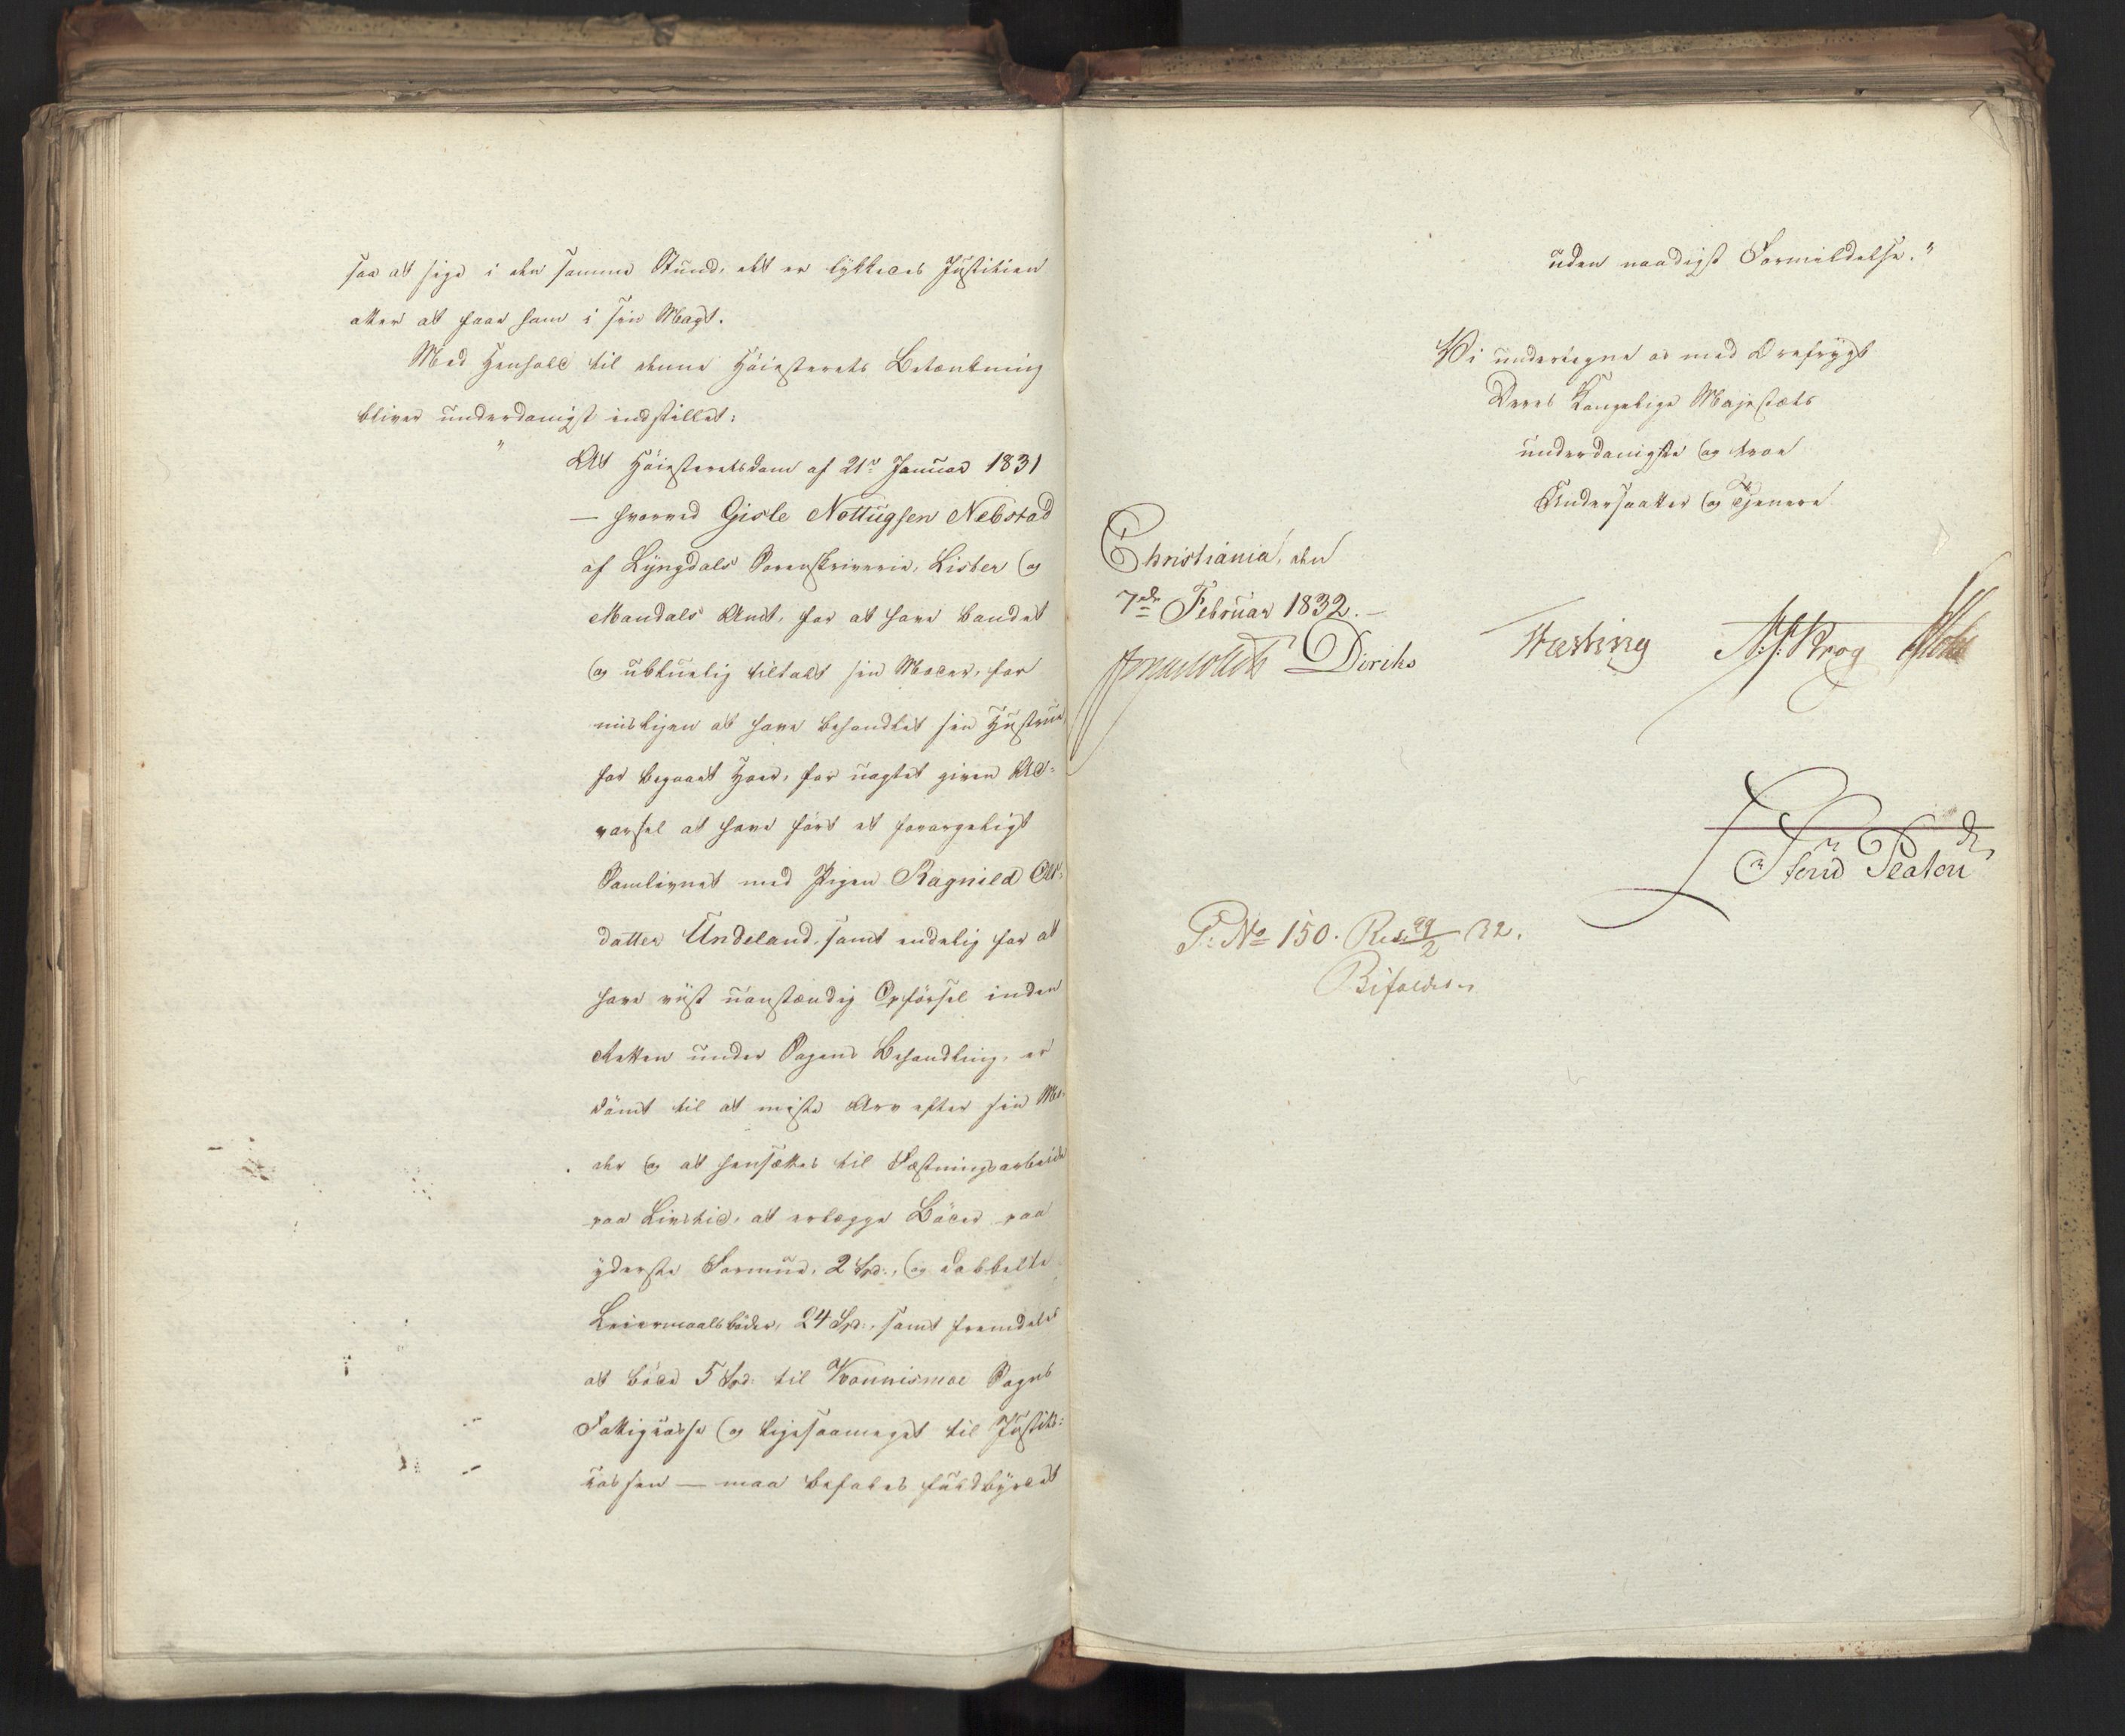 saa at sige i den samme Stund, det er lykkedes Justitien
atter at faae ham i sin Magt.
Med Henhold til denne Høiesterets Betænkning
bliver underdanigst indstillet:
"At Høiesteretsdom af 21de Januar 1831
— hvorved Gisle Nottugsen Nebstad
af Lyngdals Sorenskriverie, Lister og
Mandals Amt, for at have bandet
og utilbørlig tiltalt sin Moder, for
misligen at have behandlet sin Hustrue,
for begaaet Hoer, for uagtet given Ad-
varsel at have ført et forargeligt
Samlevnet med Pigen Ragnild
datter Undeland, samt endelig for at
have viist uanstændig Opførsel inden
Retten under Sagens Behandling, er
dømt til at miste Arv efter sin Mo-
der og at hensættes til Fæstningsarbeide
paa Livstid, at erlægge Bøder paa
yderste Formue, 2 Spd:, og dobbelte
Leiermaalsbøder, 24 Spd:, samt fremdeles
at bøde 5 Spd: til Vonnismoe Sogns
Fattigkasse og ligesaameget til Justits-
kassen — maa befales fuldbyrdet
uden naadigst Formildelse."
Vi undertegne os med Ærefrygt
Deres Kongelige Majestæts
underdanigste og troe
Undersaatter og Tjenere
Christiania, den
7de Februar 1832.—
Diriks
N. J. Krog
P: No 150. Res: 29/2 32.
Bifaldes.